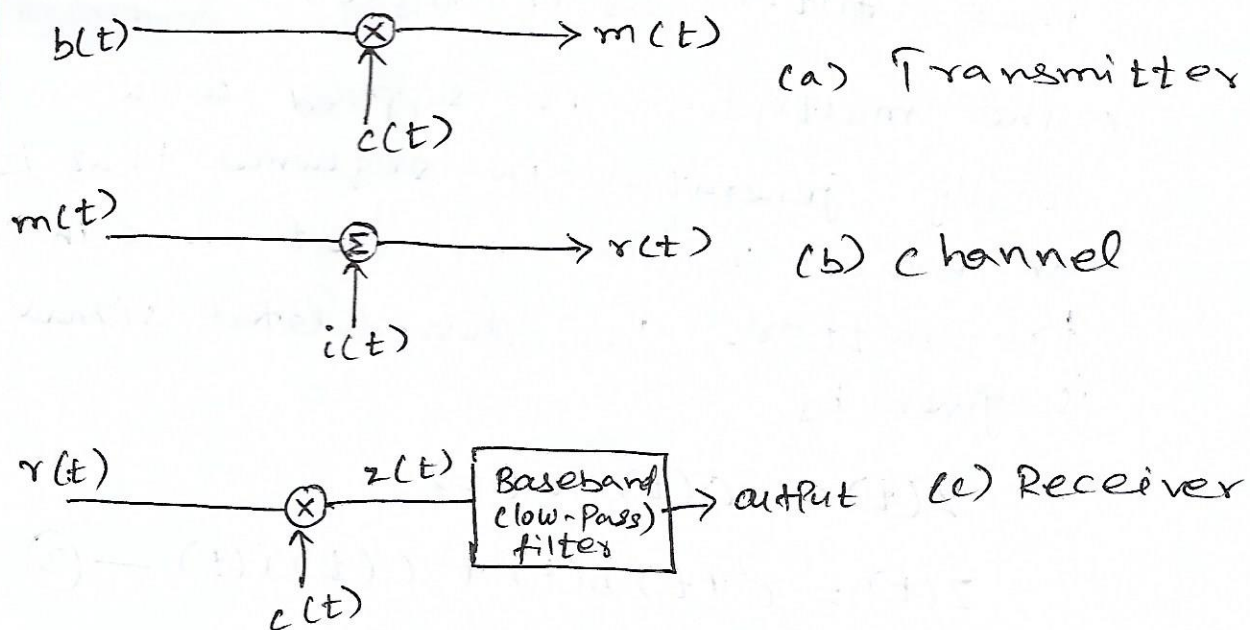 b(t) ⊗ → m(t)
(a) Transmitter
c(t)
m(t) Σ → r(t) (b) channel
i(t)
r(t) ⊗ z(t) Baseband (low-Pass) filter → output (c) Receiver
c(t)